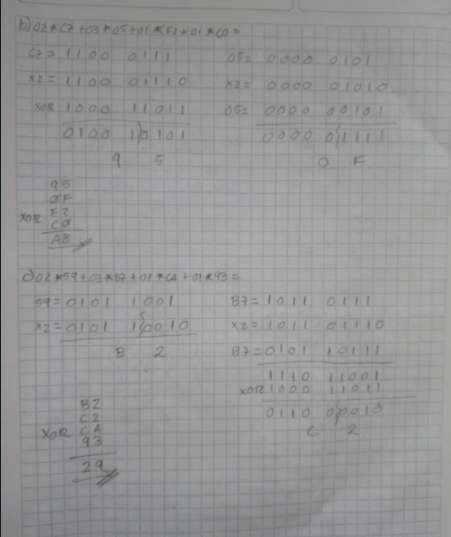 b) 02*C7+03*05+01*F2+01*C0=
C7= 1100 0111
x2= 1100 01110
XOR 1000 11011
0100 10101
9 5
05= 0000 0101
x2= 0000 01010
05= 0000 00101
0000 01111
0 F
95
0F
F2
XOR C0
A8
c) 02*59+03*B7+01*CA+01*93=
59= 0101 1001
x2= 0101 10010
B 2
B7= 1011 0111
x2= 1011 01110
B7= 0101 10111
1110 11001
XOR 1000 11011
0110 00010
C 2
B2
C2
XOR CA
93
29